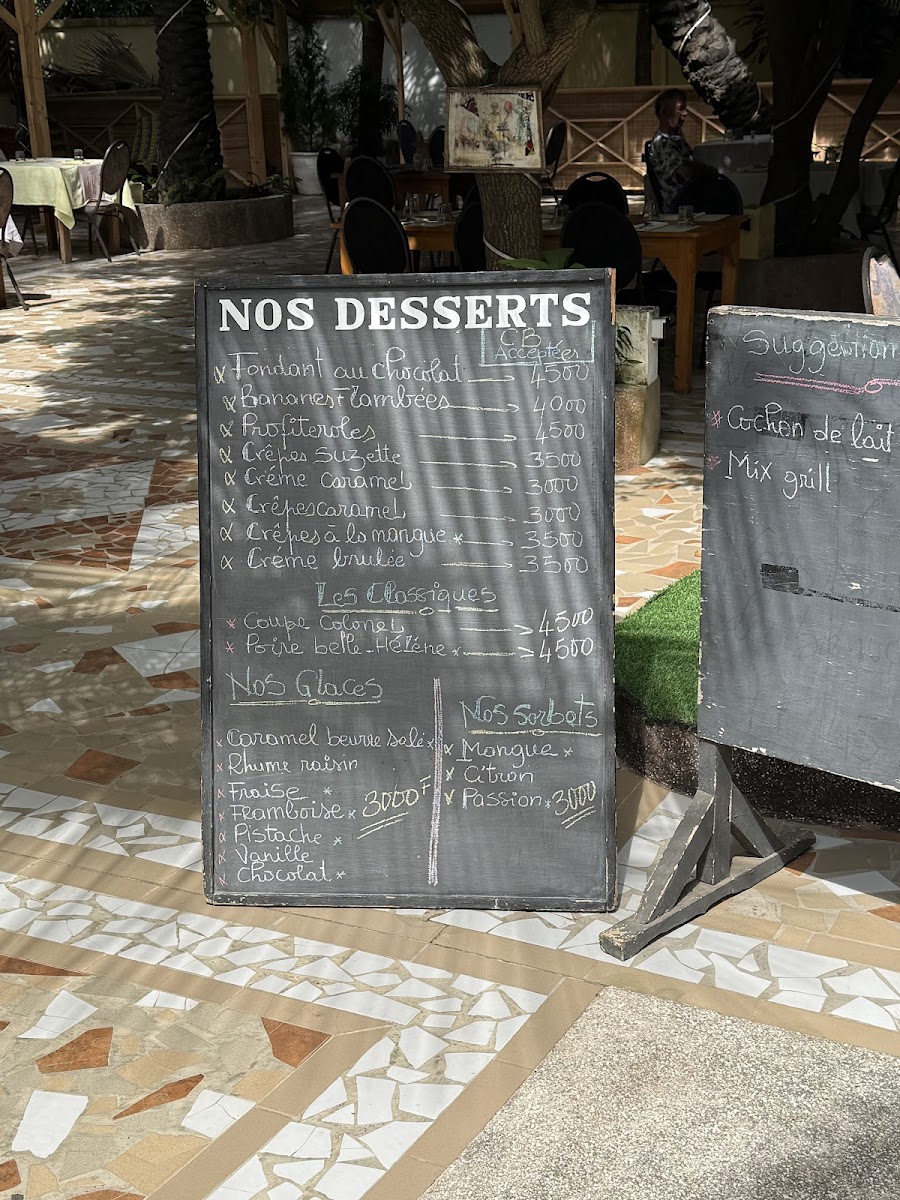 NOS DESSERTS
CB
Acceptées
Fondant au chocolat 4500
Bananes Flambées 4000
Profiteroles 4500
Crêpes Suzette 3500
Créme caramel 3000
Crêpes caramel 3000
Crêpes à la mangue * 3500
Créme brulée 3500
Les Classiques
* Coupe Colonel 4500
* Poire belle-Hélène * 4500
Nos Glaces
x Caramel beurre salé x
x Rhume raisin
x Fraise *
x Framboise x 3000F
x Pistache *
x Vanille
x chocolat *
Nos sorbets
x Mangue *
x Citron
x Passion * 3000
Suggestion
* Cochon de lait
* Mix grill